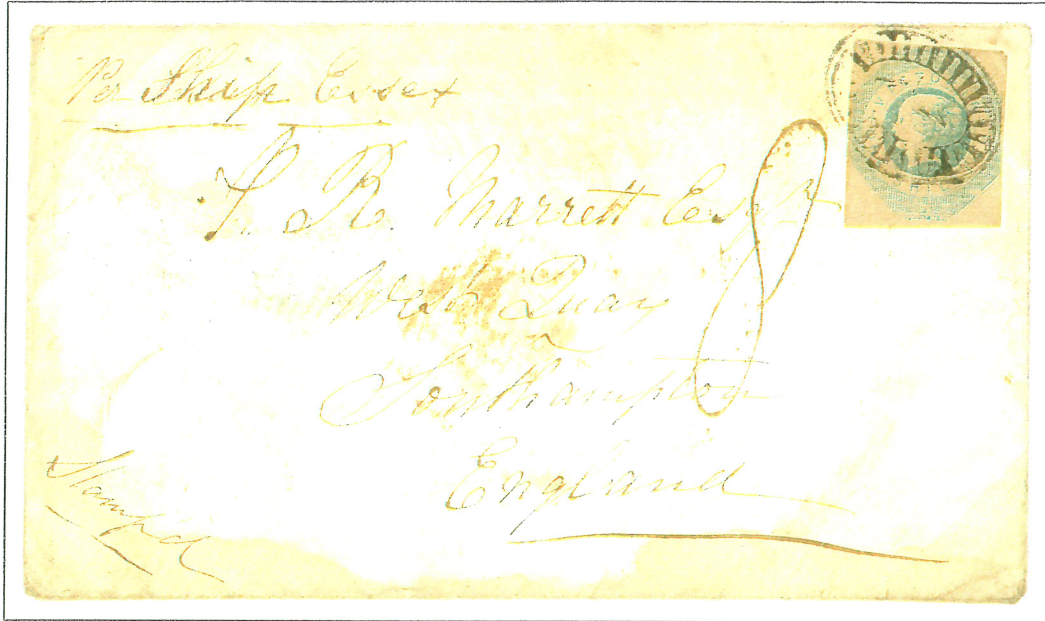 Per Ship Essex
S. R. Marrett Esqr
West Quay
Southampton
England
8
Stamp'd